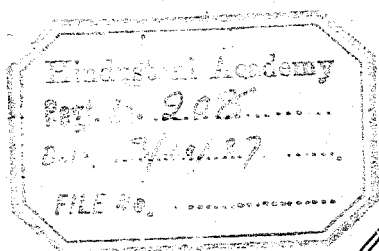 Hindustani Academy
Regt. No. 208
Date
FILE No.